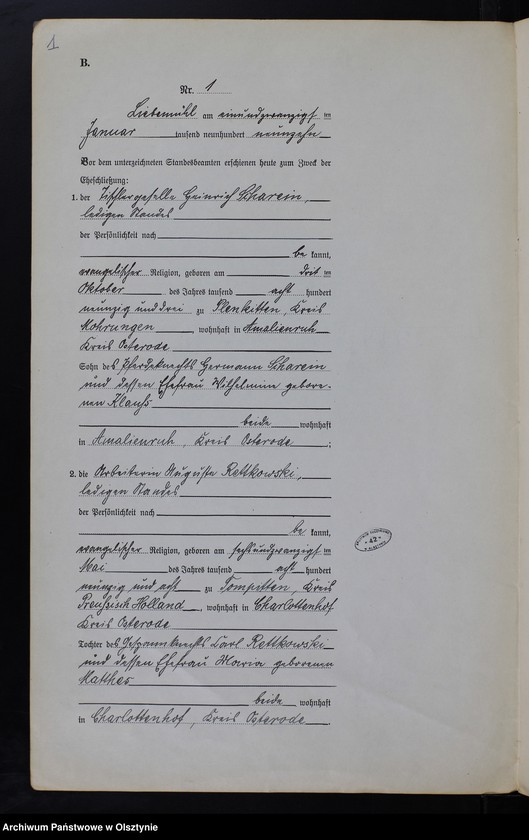 1
B.
Nr. 1
Liebemühl am einundzwanzigst en
Januar tausend neunhundert neunzehn
Vor dem unterzeichneten Standesbeamten erschienen heute zum Zweck der
Eheschließung:
1. der Tischlergeselle Heinrich Scharein,
ledigen Standes
der Persönlichkeit nach
be kannt,
evangelischer Religion, geboren am drit en
Oktober des Jahres tausend acht hundert
neunzig und drei zu Plenkitten, Kreis
Mohrungen, wohnhaft in Amalienruh
Kreis Osterode
Sohn des Pferdeknechts Hermann Scharein
und dessen Ehefrau Wilhelmine gebore-
nen Klauß
beide wohnhaft
in Amalienruh, Kreis Osterode;
2. die Arbeiterin Auguste Rettkowski,
ledigen Standes
der Persönlichkeit nach
be kannt,
evangelischer Religion, geboren am sechsundzwanzigst en
Mai des Jahres tausend acht hundert
neunzig und acht zu Tompitten, Kreis
Preußisch Holland, wohnhaft in Charlottenhof
Kreis Osterode
Tochter des Gespannknechts Carl Rettkowski
und dessen Ehefrau Maria geborenen
Matthes
beide wohnhaft
in Charlottenhof, Kreis Osterode.
42
Archiwum Państwowe w Olsztynie